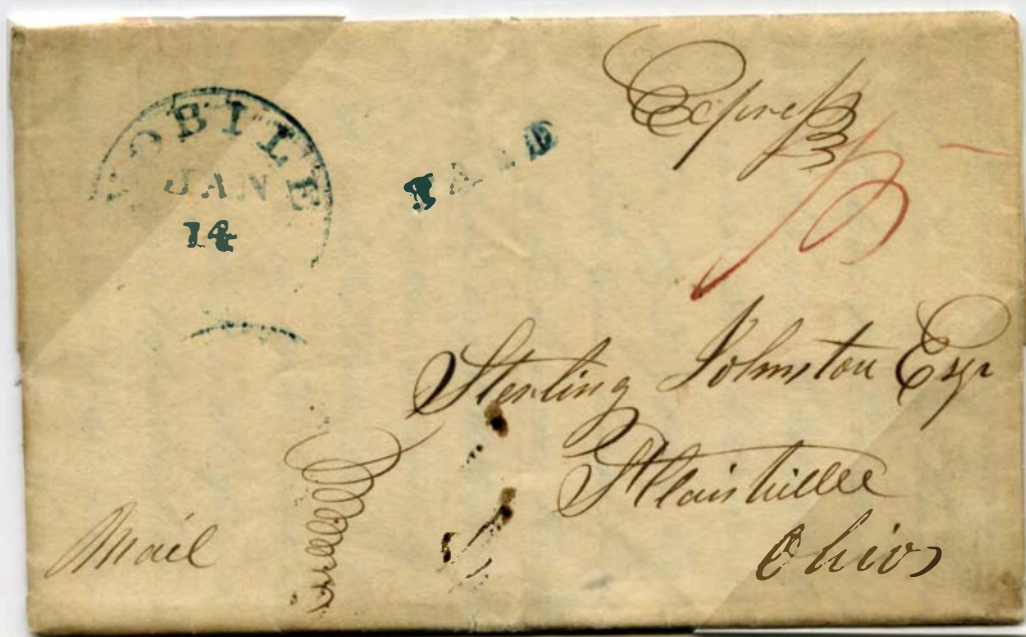 MOBILE
JAN
14
PAID
Express
Sterling Johnston Esqr
Plainville
Ohio
Mail